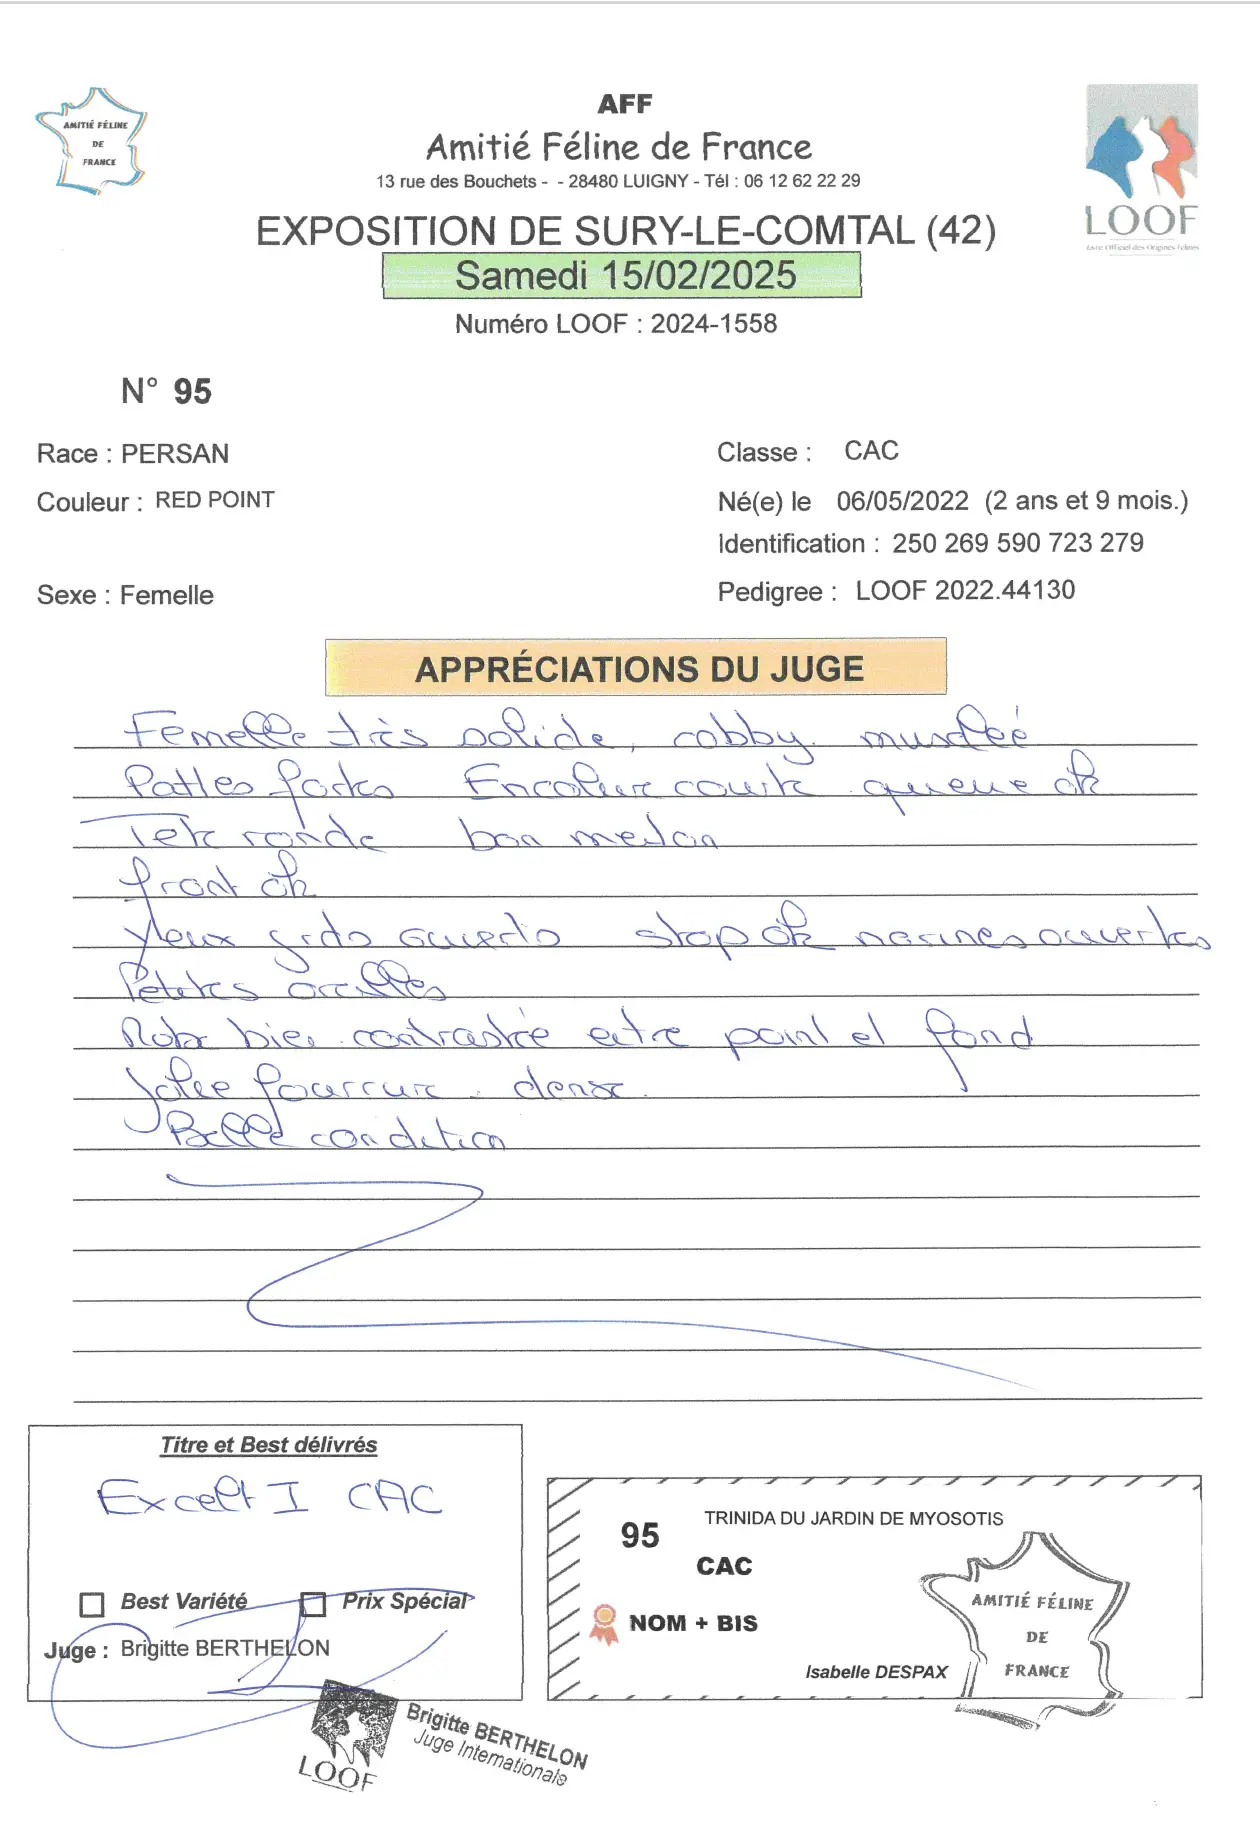 AMITIÉ FÉLINE
DE
FRANCE
AFF
Amitié Féline de France
13 rue des Bouchets - - 28480 LUIGNY - Tél : 06 12 62 22 29
LOOF
Livre Officiel des Origines Félines
EXPOSITION DE SURY-LE-COMTAL (42)
Samedi 15/02/2025
Numéro LOOF : 2024-1558
N° 95
Race : PERSAN
Classe : CAC
Couleur : RED POINT
Né(e) le 06/05/2022 (2 ans et 9 mois.)
Identification : 250 269 590 723 279
Sexe : Femelle
Pedigree : LOOF 2022.44130
APPRÉCIATIONS DU JUGE
Femelle très solide, cobby. musclée
Pattes fortes Encolure courte queue ok
Tete ronde bon menton
front ok
Yeux grds ouverts stop ok narines ouvertes
Petites oreilles
Robe bien contrastée entre point et fond
Jolie fourrure. dense.
Belle condition
Titre et Best délivrés
Excelt I CAC
Best Variété Prix Spécial
Juge : Brigitte BERTHELON
95
TRINIDA DU JARDIN DE MYOSOTIS
CAC
NOM + BIS
Isabelle DESPAX
AMITIÉ FÉLINE
DE
FRANCE
LOOF
Brigitte BERTHELON
Juge Internationale